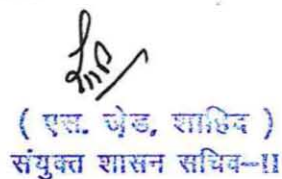 ( एस. ज़ेड. शाहिद )
संयुक्त शासन सचिव-II